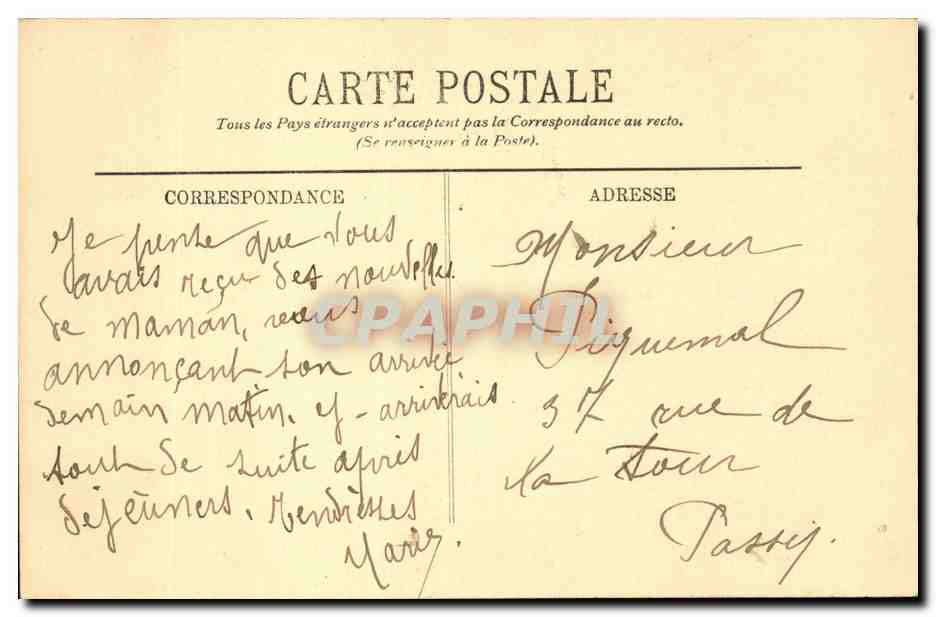 CARTE POSTALE
Tous les Pays étrangers n'acceptent pas la Correspondance au recto.
(Se renseigner à la Poste).
CORRESPONDANCE
Je pense que vous
avais reçu des nouvelles
de maman, vous
annonçant son arrivée
demain matin. j'arriverais
tout de suite après
déjeuners. Tendresses
Marie.
ADRESSE
Monsieur
Piquemal
37 rue de
la Tour
Passy.
CPAPHIL